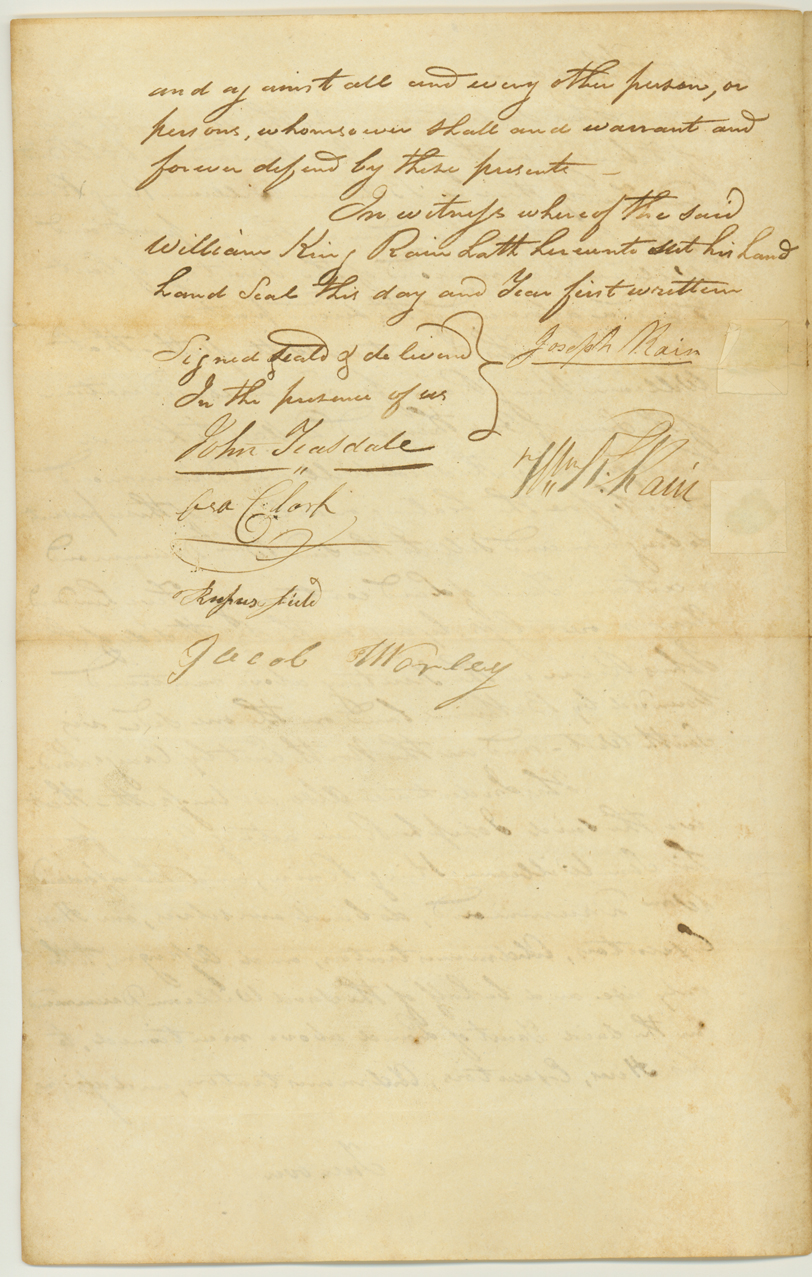 and against all and every other person, or
persons, whomsoever shall and warrant and
forever defend by these presents –
In witness whereof the said
William King Rain hath hereunto set his hand
hand Seal this day and Year first written
Signed Seald & delivered
In the presence of us
Joseph Rain
John Teasdale
Wm K. Rain
Geo Clark
Rufus Field
Jacob Worley